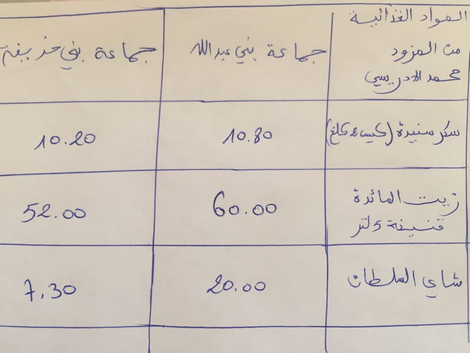 المواد الغذائية
من المزود
محمد الادريسي
جماعة بني عبد الله
جماعة بني حذيفة
سكر سنيدة (كيس 2 كلغ)
10.80
10.20
زيت المائدة
قنينة 5 لتر
60.00
52.00
شاي السلطان
20.00
7,30